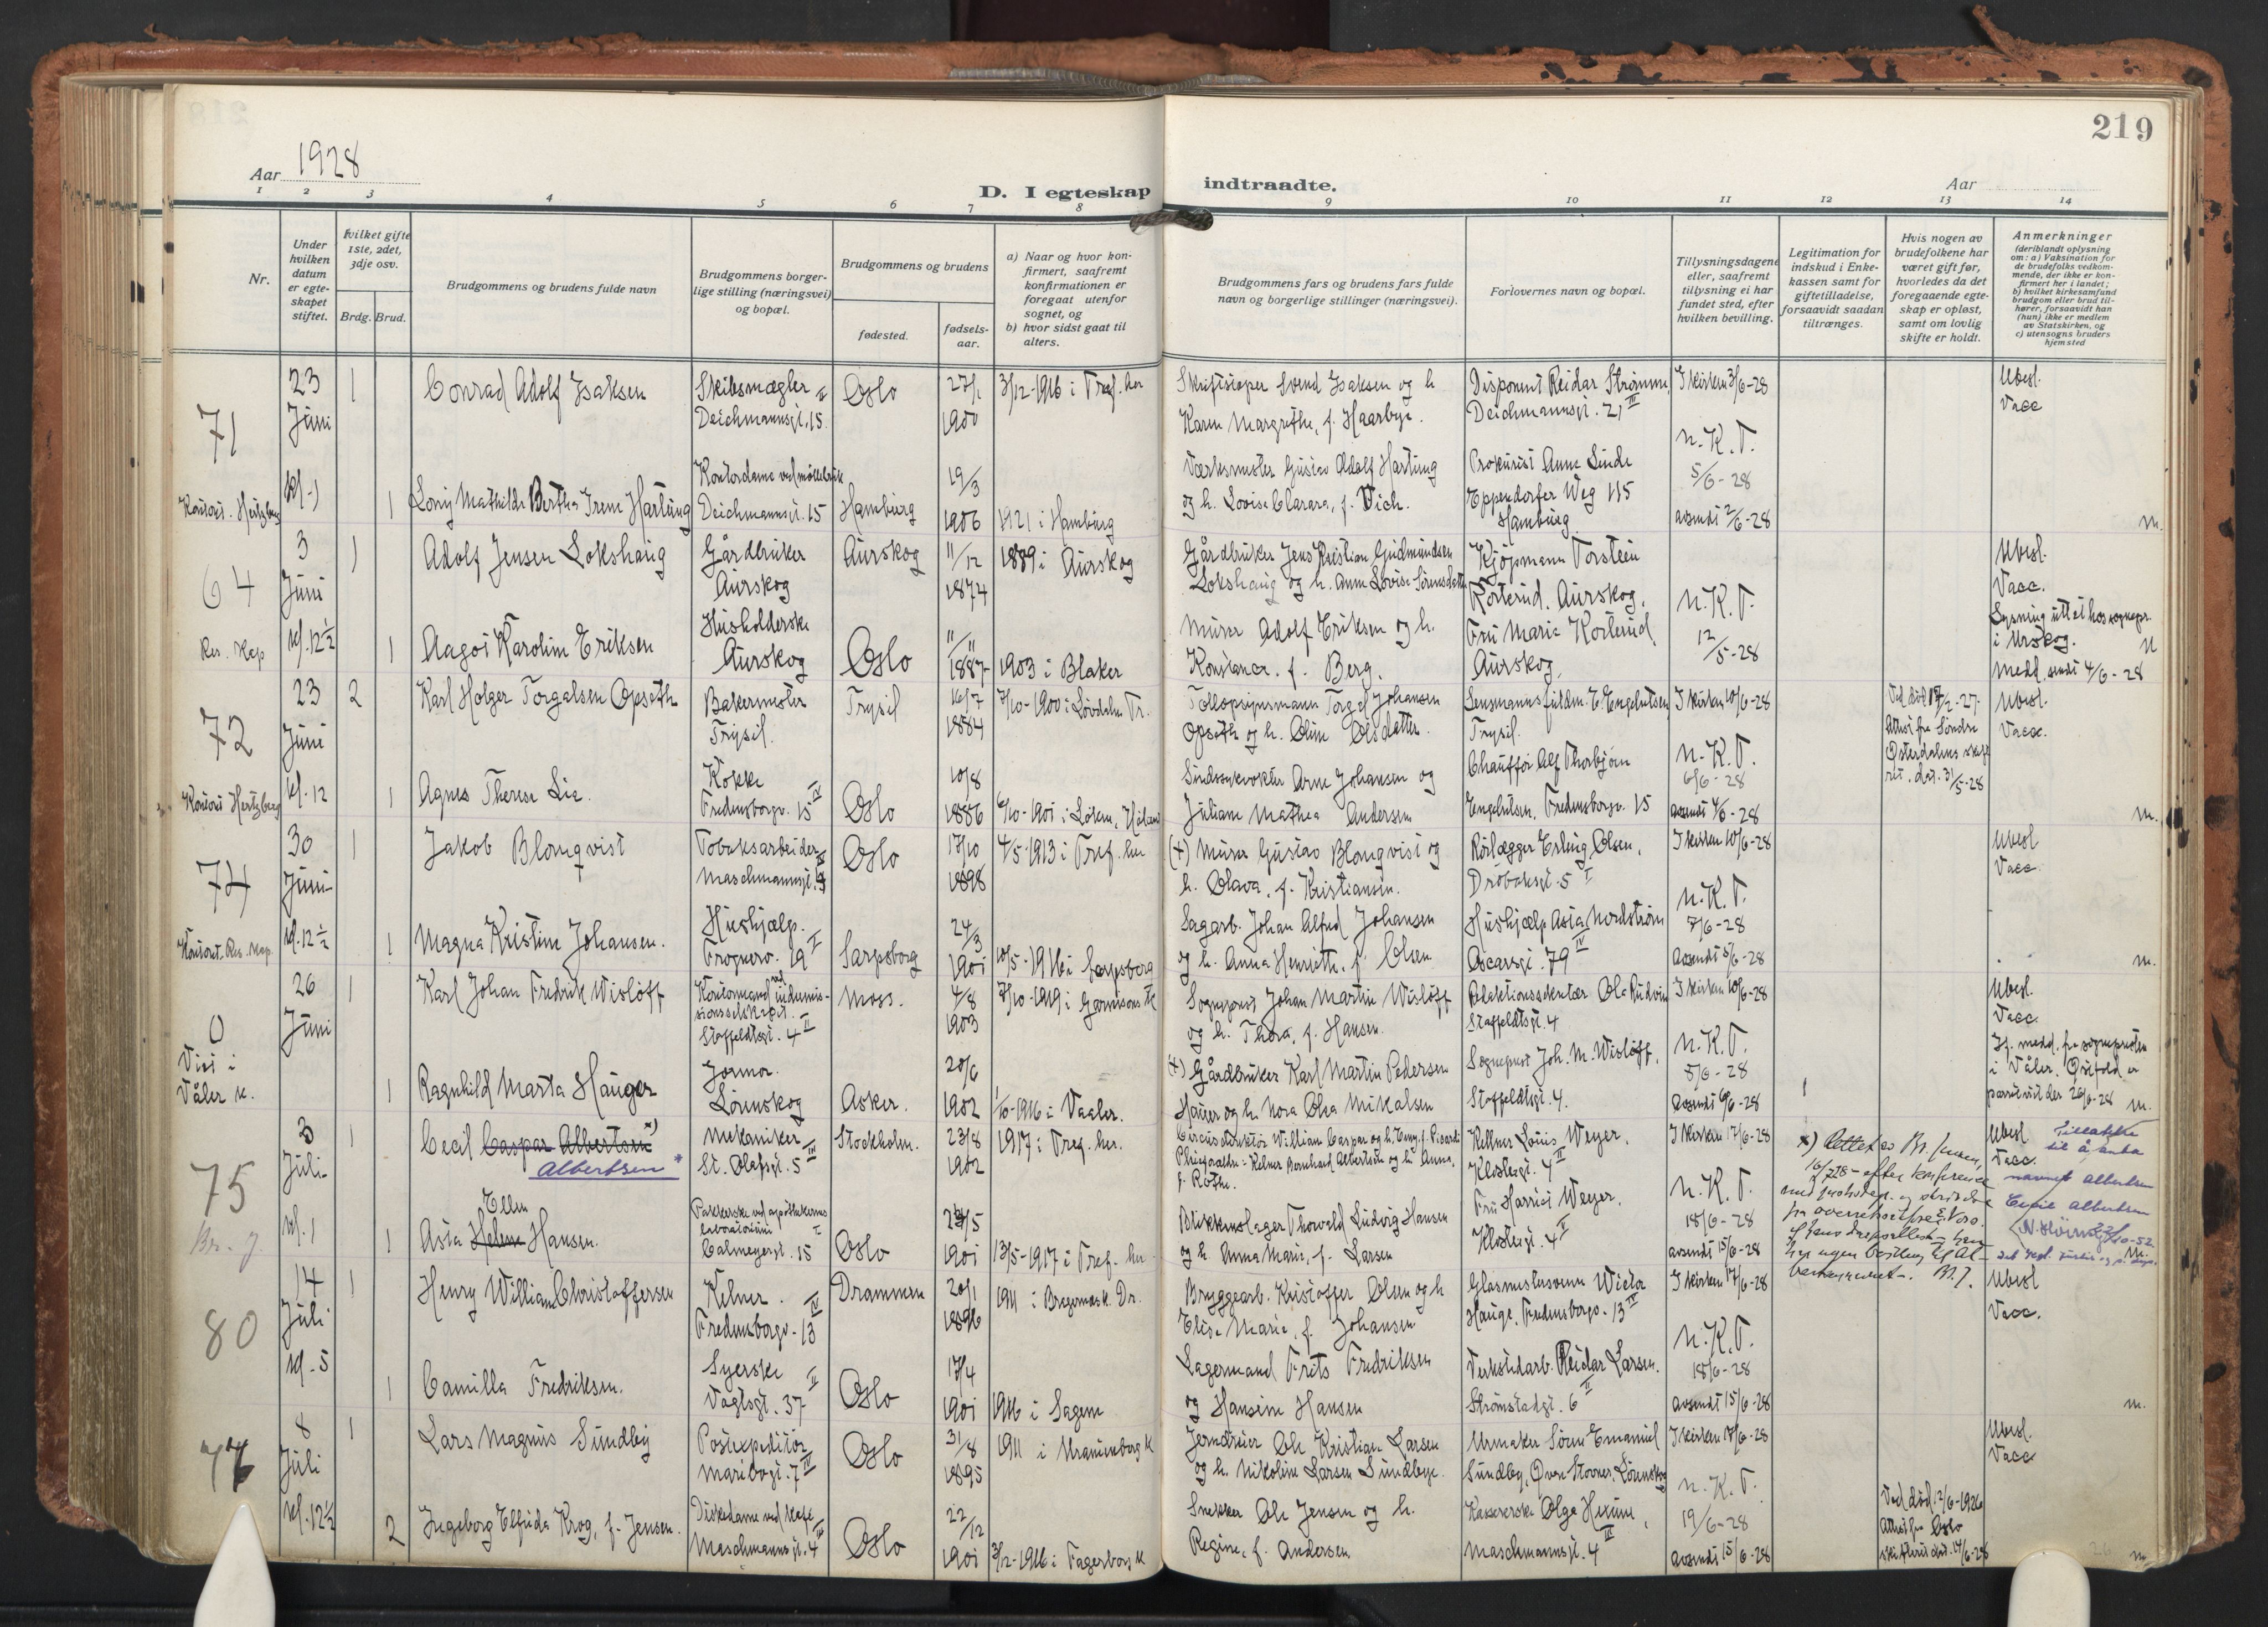 219
Aar 1928
D. I egteskap indtraadte.
Aar
1 2 3 4 5 6 7 8 9 10 11 12 13 14
Nr.
Under hvilken datum er egte-skapet stiftet.
Hvilket gifte 1ste, 2det, 3dje osv.
Brdg. Brud.
Brudgommens og brudens fulde navn
Brudgommens borger-lige stilling (næringsvei) og bopæl.
Brudgommens og brudens
fødested.
fødsels-aar.
a) Naar og hvor kon-firmert, saafremt konfirmationen er foregaat utenfor sognet, og
b) hvor sidst gaat til alters.
Brudgommens fars og brudens fars fulde navn og borgerlige stillinger (næringsvei).
Forlovernes navn og bopæl.
Tillysningsdagene eller, saafremt tillysning ei har fundet sted, efter hvilken bevilling.
Legitimation for indskud i Enke-kassen samt for giftetilladelse, forsaavidt saadan tiltrænges.
Hvis nogen av brudefolkene har været gift før, hvorledes da det foregaaende egte-skap er opløst, samt om lovlig skifte er holdt.
Anmerkninger
(deriblandt oplysning om: a) Vaksination for de brudefolks vedkom-mende, der ikke er kon-firmert her i landet; b) hvilket kirkesamfund brudgom eller brud til-hører, forsaavidt han (hun) ikke er medlem av Statskirken, og c) utensogns bruders hjemsted
71
23 Juni kl. 1
1 Conrad Adolf Isaksen
Skibsmægler
Deichmannsgt. 15 II
Oslo
27/1 1900
3/12-1916 i Tref. her
Svend Isaksen og h.
Karen Margrethe, f. Haarbye.
Disponent Reidar Strømme
Deichmannsgt. 21 III
I kirken 3/6-28
n.K.T.
5/6-28
avsendt 2/6-28
Ubesl.
Vacc
1 Lony Mathilde Bertha Irene Hartung
Deichmannsgt. 15
Hamburg
19/3 1906
1921 i Hamburg
Værksmester Gustav Adolf Hartung
og h. Lovise Clarara, f. Vich.
Prokurist Anne Linde
Eppendorfer Weg 115
Hamburg
m.
64
Res. Kap
3 Juni kl. 12½
1 Adolf Jensen Lokshaug
Gårdbruker
Aurskog
Aurskog
11/12 1874
1889 i Aurskog
Gårdbruker Jens Kristian Gudmundsen
Lokshaug og h. Anne Lovise Sørensdatter
Kjøpmann Torstein
Korterud. Aurskog.
n.K.T.
12/5-28
Ubesl.
Vacc.
i Urskog.
medd. sendt 4/6-28
1 Aagot Karoline Eriksen
Husholderske
Aurskog
Oslo
11/11 1887
1903 i Blaker
Murer Adolf Eriksen og h.
Konstance. f. Berg.
Fru Marie Korterud
Aurskog.
72
Kontoret Hertzberg
23 Juni kl. 12
2 Karl Holger Torgalsen Opseth
Bakermester
Trysil.
Trysil
16/7 1884
7/10-1900 i Lørdalen Tr.
Johansen
Opseth og h. Oline Olsdatter.
Lensmannsfuldm. E. Engebretsen
Trysil.
I kirken 10/6-28
n.K.T.
6/6-28
avsendt 4/6-28
Ved død 17/2-27.
Attest fra Søndre
Østerdalens skifte
ret. dat. 31/5-28
Ubesl.
Vacc.
1 Agnes Therese Lie.
Kokke
Fredensborgv. 15 IV
Oslo
10/8 1886
Sindssykevokter Arne Johansen og
Juliane Mathea Andersen
Chauffør Alf Thorbjørn
Engebretsen, Fredensborgv. 15
m.
74
Kontoret. Res. Kap.
30 Juni kl. 12½
1 Jakob Blomqvist
Tobaksarbeider
Maschmannsgt.
Oslo
17/10 1898
4/5-1913 i Tref. her
(+) Murer Gustav Blomqvist og
h. Olava, f. Kristiansen.
Rørlægger Erling Olsen,
Drøbaksgt. 5 I
I kirken 10/6-28
n.K.T.
7/6-28
avsendt 5/6-28
Ubesl
Vacc.
1 Magna Kristine Johansen.
Hushjælp.
Frognerv. 19 I
Sarpsborg
24/3 1901
10/5-1916 i Sarpsborg
Sagarb. Johan Alfred Johansen
og h. Anna Henriette, f. Olsen
Hushjælp Asta Nordstrøm
Oscarsgt. 79 IV
m.
0
Viet i
Våler k.
26 Juni
1 Karl Johan Fredrik Wisløff
Staffeldtsgt. 4 II
Moss.
4/8 1903
7/10-1919 i Garnisons K
Sogneprest Johan Martin Wisløff
og h. Thora, f. Hansen.
Redaktionssekretær Ola Rudvin
Staffeldtsgt. 4
I kirken 10/6-28
n.K.T.
5/6-28
Ubesl.
Vacc.
If. medd. fra sognepresten
i Våler. Østfold er
parret viet der 26/6-28 m.
1 Ragnhild Marta Hauger
Jormor.
Lørenskog
Asker.
20/6 1902
1/10-1916 i Vaaler.
(+) Gårdbruker Karl Martin Pedersen
Hauer og h. Nora Olea Mikalsen
Sogneprest Joh. M. Wisløff.
Staffeldtsgt. 4.
75
3 Juli kl. 1
1 Cecil Caspar Albertsen x)
Albertsen *
Mekaniker
St. Olafsgt. 5 III
Stockholm.
23/8 1902
1917 i Tref. her.
f. Rothe.
Kelner Louis Weyer.
Klostergt. 4 II
I kirken 17/6-28
n.K.T.
18/6-28
avsendt 15/6-28
Ubesl
Vacc.
Ellen
1 Asta Helene Hansen.
Calmeyersgt. 15 I
Oslo
1901
13/5-1917 i Tref. her
Blikkenslager Thorvald Ludvig Hansen
og h. Anna Marie, f. Larsen
Fru Harriet Weyer.
Klostergt. 4 II
80
14 Juli kl. 5
1 Henry William Christoffersen
Kelner.
Fredensborgv. 13 IV
Drammen
20/1 1896
1911 i Bragernes k. Dr.
Bryggearb. Kristoffer Olsen og h
Elise Marie, f. Johansen
Glasmestersvenn Victor
Hauge, Fredensborgv. 13 II
I kirken 17/6-28
n.K.T.
18/6-28
avsendt 15/6-28
Ubesl
Vacc.
1 Camilla Fredriksen.
Syerske
Vogtsgt. 37 II
Oslo
17/4 1901
1916 i Sagene
Lagermand Frits Fredriksen
og Hansine Hansen
Verkstedarb. Reidar Larsen.
Strømstadgt. 6 II
m.
77
8 Juli kl. 12½
1 Lars Magnus Sundby
Postexpeditør
Maribogt. 7 IV
Oslo
31/8 1895
1911 i Uranienborg K
Jerndreier Ole Kristian Larsen
og h. Nikoline Larsen Sundbye.
Urmaker Søren Emanuel
Sundby, Øvre Stovner, Lørenskog
I kirken 17/6-28
n.K.T.
19/6-28
avsendt 15/6-28
Ubesl.
Vacc
2 Ingeborg Elfrida Krog, f. Jensen.
Diskedame ved Kafe
Maschmannsgt. 4 III
Oslo
22/12 1901
3/12-1916 i Fagerborg K
Snekker Ole Jensen og h.
Regine, f. Andersen
Kassererske Olga Hexum,
Maschmannsgt. 4 III
Ved død 12/6-1926
Attest fra Oslo
skifterett dat. 14/6-28
m.